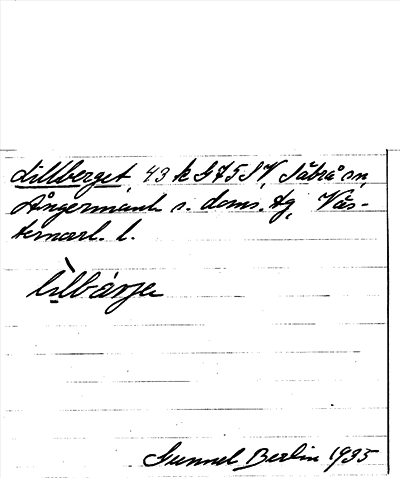 Lillberget, 43 k G 75 SV, Säbrå sn,
Ångermanl. s. doms. tg, Väs-
ternorrl. l.
lìlbárje
Gunnel Berlin 1935